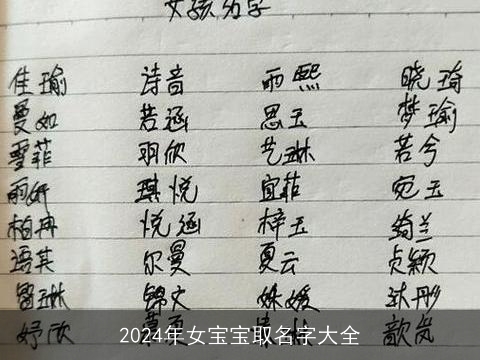 女孩名字
佳瑜 诗音 雨熙 晓琦
曼如 若涵 思玉 梦瑜
雪菲 玥欣 艺琳 若兮
雨妍 琪悦 宜菲 宛玉
柏冉 悦涵 梓玉 绮兰
语其 尔曼 夏云 贞颖
曼琳 锦文 姝媛 沐彤
妤欣 歆岚
2024年女宝宝取名字大全